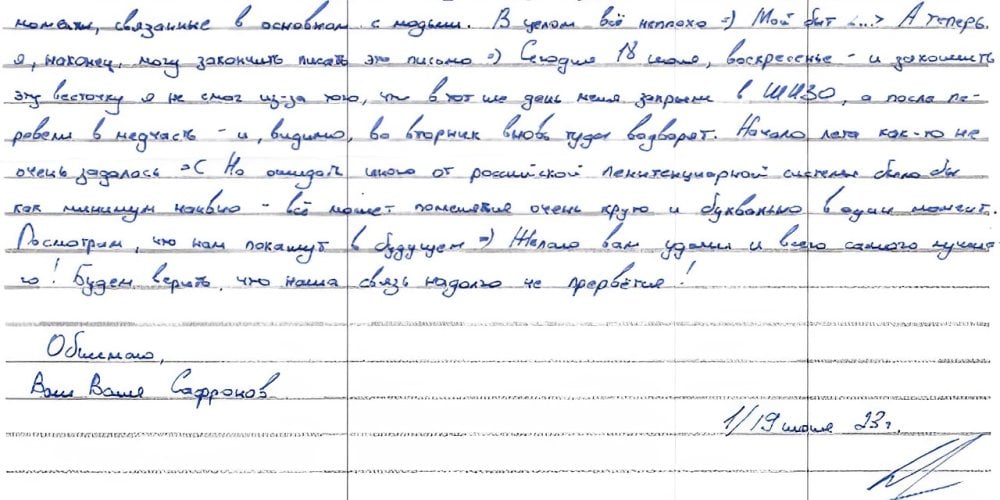 моменты, связанные в основном с людьми. В целом всё неплохо =) Мой быт <...> А теперь
я, наконец, могу закончить писать это письмо =) Сегодня 18 июня, воскресенье - и закончить
эту весточку я не смог из-за того, что в тот же день меня закрыли в ШИЗО, а после пе-
ревели в медчасть - и, видимо, во вторник вновь туда водворят. Начало лета как-то не
очень задалось =( Но ожидать иного от российской пенитенциарной системы было бы
как минимум наивно - всё может поменяться очень круто и буквально в один момент.
Посмотрим, что нам покажут в будущем =) Желаю вам удачи и всего самого лучше-
го! Будем верить, что наша связь надолго не прервётся!
Обнимаю,
Ваш Ваня Сафронов
1/19 июня 23г.